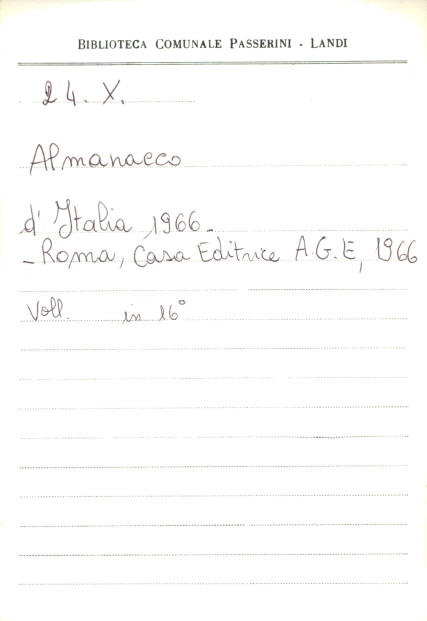 BIBLIOTECA COMUNALE PASSERINI - LANDI
24. X.
Almanacco
d' Italia 1966-
- Roma, Casa Editrice A.G.E, 1966
Voll. in 16°